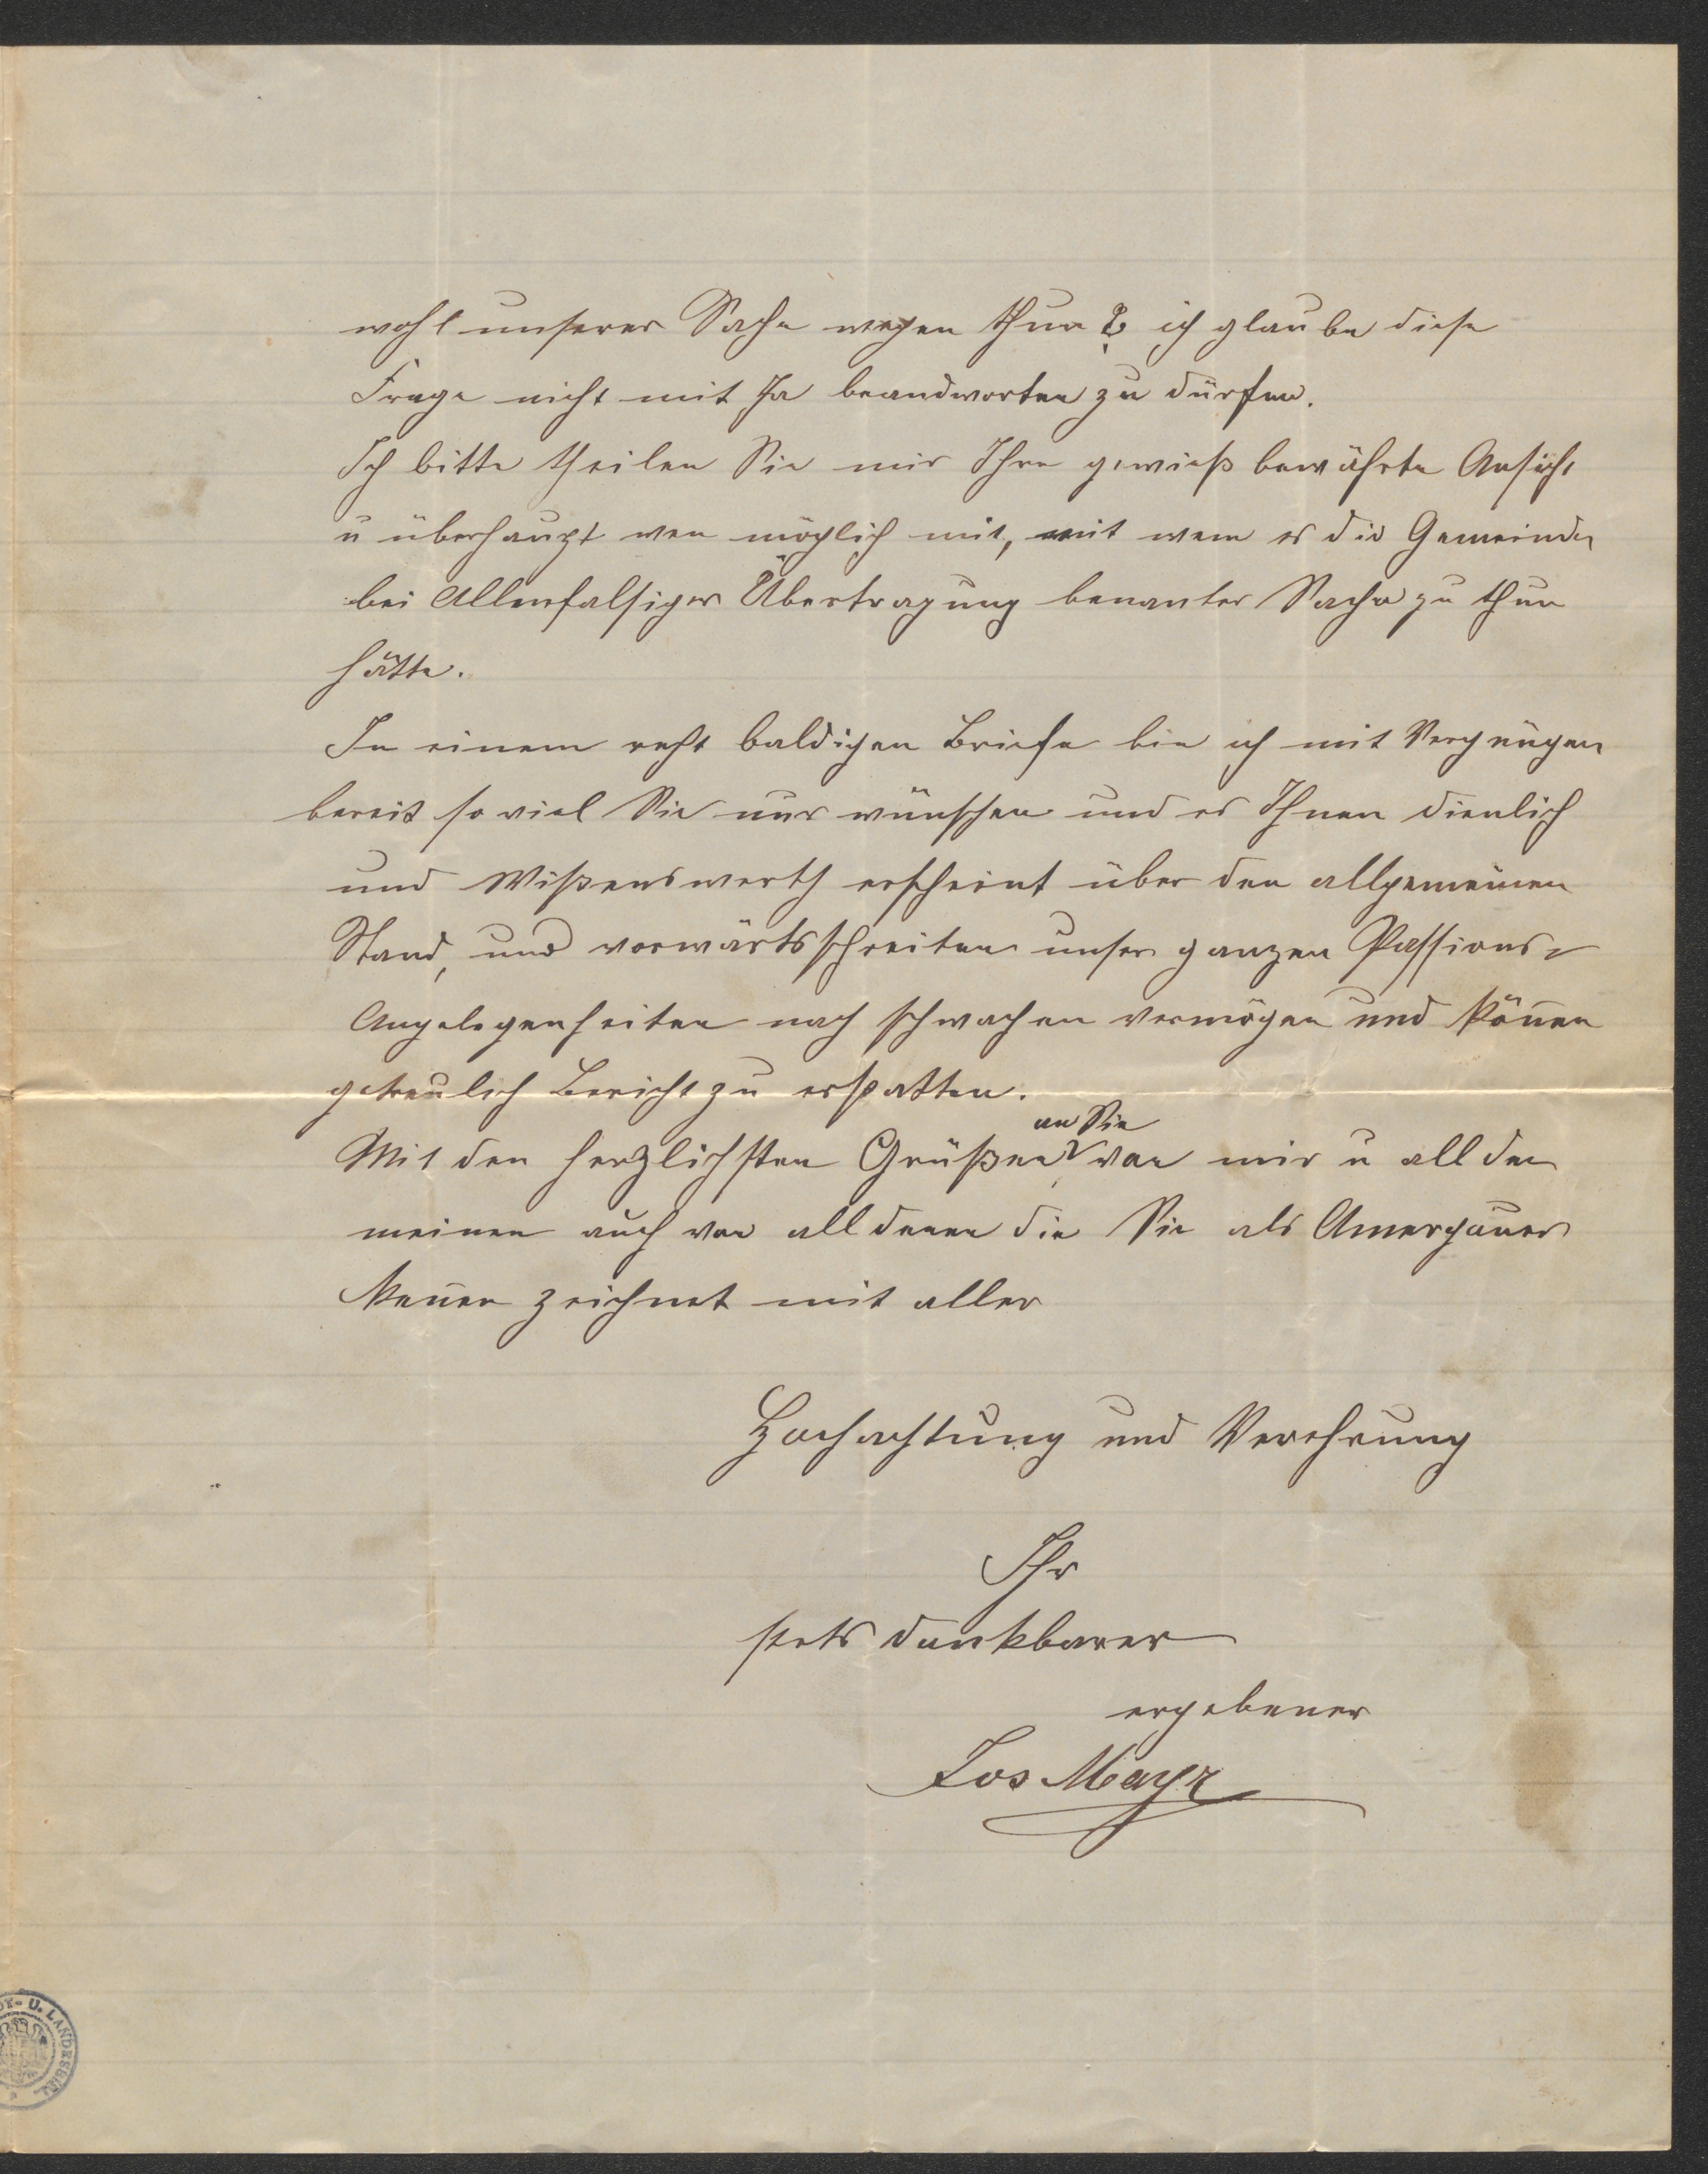 wohl unserer Sache wegen thun? ich glaube diese
Frage nicht mit Ja beandworten zu dürfen.
Ich bitte theilen Sie mir Ihre gewieß bewährte Ansicht
u überhaupt wen möglich mit, mit wem es die Gemeinde
bei Allenfalsiger Übertragung benanter Sache zu thun
hätte.
In einem recht baldigen Briefe bin ich mit Vergnügen
bereit so viel Sie nur wünschen und es Ihnen dienlich
und Wißenswerth erscheint über den allgemeinen
Stand, und vorwärtsschreiten unser ganzen Passions-
Angelegenheiten nach schwachen vermögen und könen
getreulich Bericht zu erstatten.
an Sie
Mit den herzlichsten Grüßen von mir u all den
meinen auch von all denen die Sie als Amergauer
kenen zeichnet mit aller
Hochachtung und Verehrung
Ihr
stets dankbarer
ergebener
Jos Mayr
U. LANDESBIBL